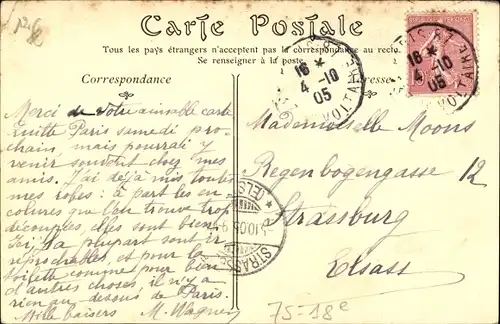 Carte Postale
Tous les pays étrangers n'acceptent pas la correspondance au recto.
Se renseigner à la poste.
Correspondance
Adresse
Merci de votre aimable carte
quitte Paris samedi pro-
chain, mais pourrai y
venir souvent chez mes
amis. J'ai déjà mis toutes
mes robes: à part les en-
colures que l'on trouve trop
découpées, elles sont bien.
Ici, la plupart sont ir
réprochables, et pour la
toilette comme pour bien
d'autres choses, il n'y a
rien au dessus de Paris.
Mille baisers M. Wagner
Mademoiselle Moons
Regenbogengasse 12
Strassburg
Elsass
16 *
4 -10
05
VOLTAIRE
16 *
4 -10
05
VOLTAIRE
STRASSB
(ELS)
75-18e